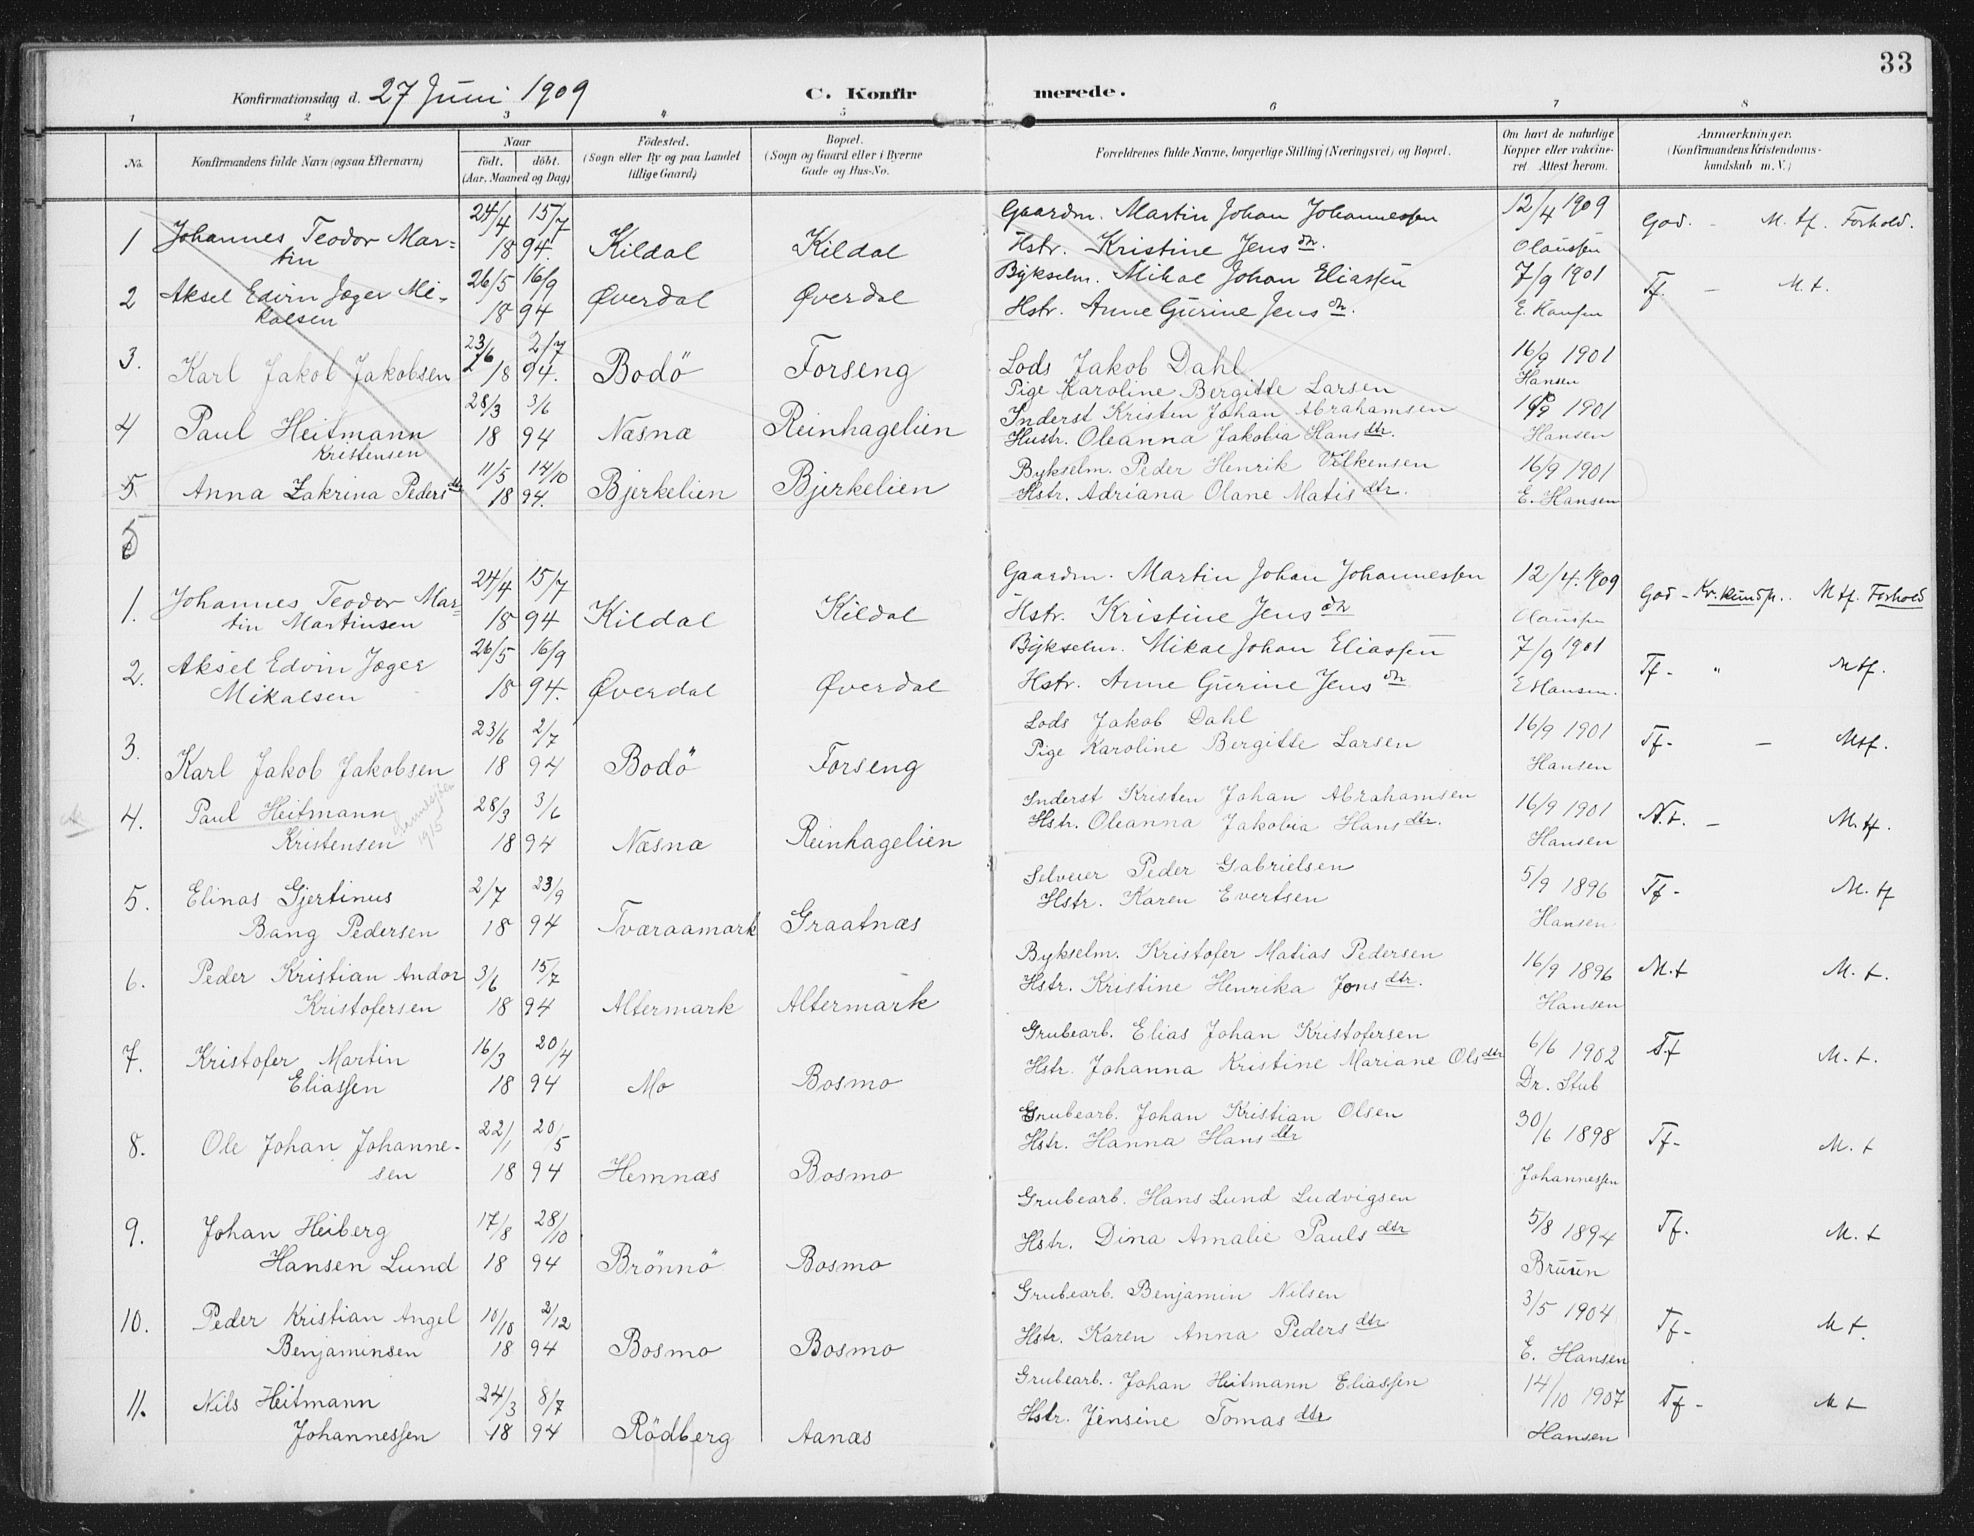 33
Konfirmationsdag d. 27 Juni 1909 C. Konfirmerede.
1 2 3 4 5 6 7 8
No. Konfirmandens fulde Navn (ogsaa Efternavn) Naar født. døbt. (Aar, Maaned og Dag) Fødested. (Sogn eller By og paa Landet tillige Gaard) Bopæl. (Sogn og Gaard eller i Byerne Gade og Hus-No. Forældrenes fulde Navne, borgerlige Stilling (Næringsvei) og Bopæl. Om havt de naturlige Kopper eller vaccineret. Attest herom. Anmærkninger. (Konfirmandens Kristendomskundskab m. V.)
24/4 15/7 Gaardm. Martin Johan Johannessen 12/4 1909 God. - M. tf. Forhold.
1 Johannes Teodor Mar=tin 18 94. Kildal Kildal Hstr. Kristine Jens dtr. Claussen
26/5 16/9 Bykselm. Mikal Johan Eliassen 7/9 1901
2 Aksel Edvin Jæger Mi- Øverdal Øverdal Tf. - M. t.
kalsen 18 94 Hstr. Anne Gurine Jens dtr. E. Hansen
23/6 2/7 16/9 1901
3. Karl Jakob Jakobsen 18 94. Bodö Forseng Lods Jakob Dahl Hansen
Pige Karoline Bergitte Larsen
28/3 3/6 Inderst Kristen Johan Abrahamsen 16/9 1901
4 Paul Heitmann 18 94 Næsna Reinhagelien Hustr. Oleanna Jakobia Hans dtr. Hansen
Kristensen
11/5 14/10 Bykselm. Peder Henrik Vilkensen 16/9 1901
5 Anna Zakrina Peders dtr 18 94. Bjerkelien Bjerkelien Hstr. Adriana Olane Matis dtr. E. Hansen
5
24/4 15/7 Gaardm. Martin Johan Johannessen 12/4. 1909
1. Johannes Teodor Mar= Kildal Kildal God - Kr.kundsk. Mtf. Forhold
tin Martinsen 18 94 Hstr. Kristine Jens dtr Claussen
26/5 16/9 Bykselm. Mikal Johan Eliassen 7/9 1901
2. Aksel Edvin Jæger Øverdal Øverdal Tf- " Mtf.
Mikalsen 18 94. Hstr. Anne Gurine Jens dtr E Hansen.
23/6 2/7 Lods Jakob Dahl 16/9 1901
3. Karl Jakob Jakobsen 18 94 Bodö Forseng Pige Karoline Bergitte Larsen Hansen Tf- - Mtf.
28/3 3/6 Inderst Kristen Johan Abrahamsen 16/9 1901
4. Paul Heitmann 1915 N.t. - M. tf.
Kristensen 18 94 Næsna Reinhagelien Hstr. Oleanna Jakobia Hans dtr. Hansen
2/7 23/9 Selveier Peder Gabrielsen 5/9 1896
5. Elinas Gjertinus Tf- M. tf
Bang Pedersen 18 94 Tværaamark Graatnæs Hstr. Karen Evertsen Hansen
3/6 15/7 Bykselm. Kristofer Matias Pedersen 16/9 1896
6. Peder Kristian Andor M.t M. t.
Kristofersen 18 94 Altermark Altermark Hstr. Kristine Henrika Jons dtr. Hansen
16/3 20/4 Grubearb. Elias Johan Kristofersen 6/6 1902
7. Kristofer Martin Tf M. t.
Eliassen 18 94 Mo Bosmo Hstr. Johanna Kristine Mariane Ols dtr Dr. Stub
22/1 20/5 Grubearb. Johan Kristian Olsen 30/6 1898
8. Ole Johan Johanne- Tf- M. t
sen 18 94 Hemnæs Bosmo Hstr. Hanna Hans dtr Johannessen
17/8 28/10 Grubearb. Hans Lund Ludvigsen 5/8 1894
9. Johan Heiberg Tf. M. t
Hansen Lund 18 94 Brönnö Bosmo Hstr. Dina Amalie Pauls dtr Bruun
10/10 2/12 Grubearb. Benjamin Nilsen 3/5 1904
10. Peder Kristian Angel Tf- M t.
Benjaminsen 18 94 Bosmo Bosmo Hstr. Karen Anna Peders dtr E. Hansen
24/3 8/7 Grubearb. Johan Heitmann Eliassen 14/10 1907
11. Nils Heitmann Tf- M t
Johannessen 18 94 Rödberg Aanæs Hstr. Jensine Tomas dtr Hansen